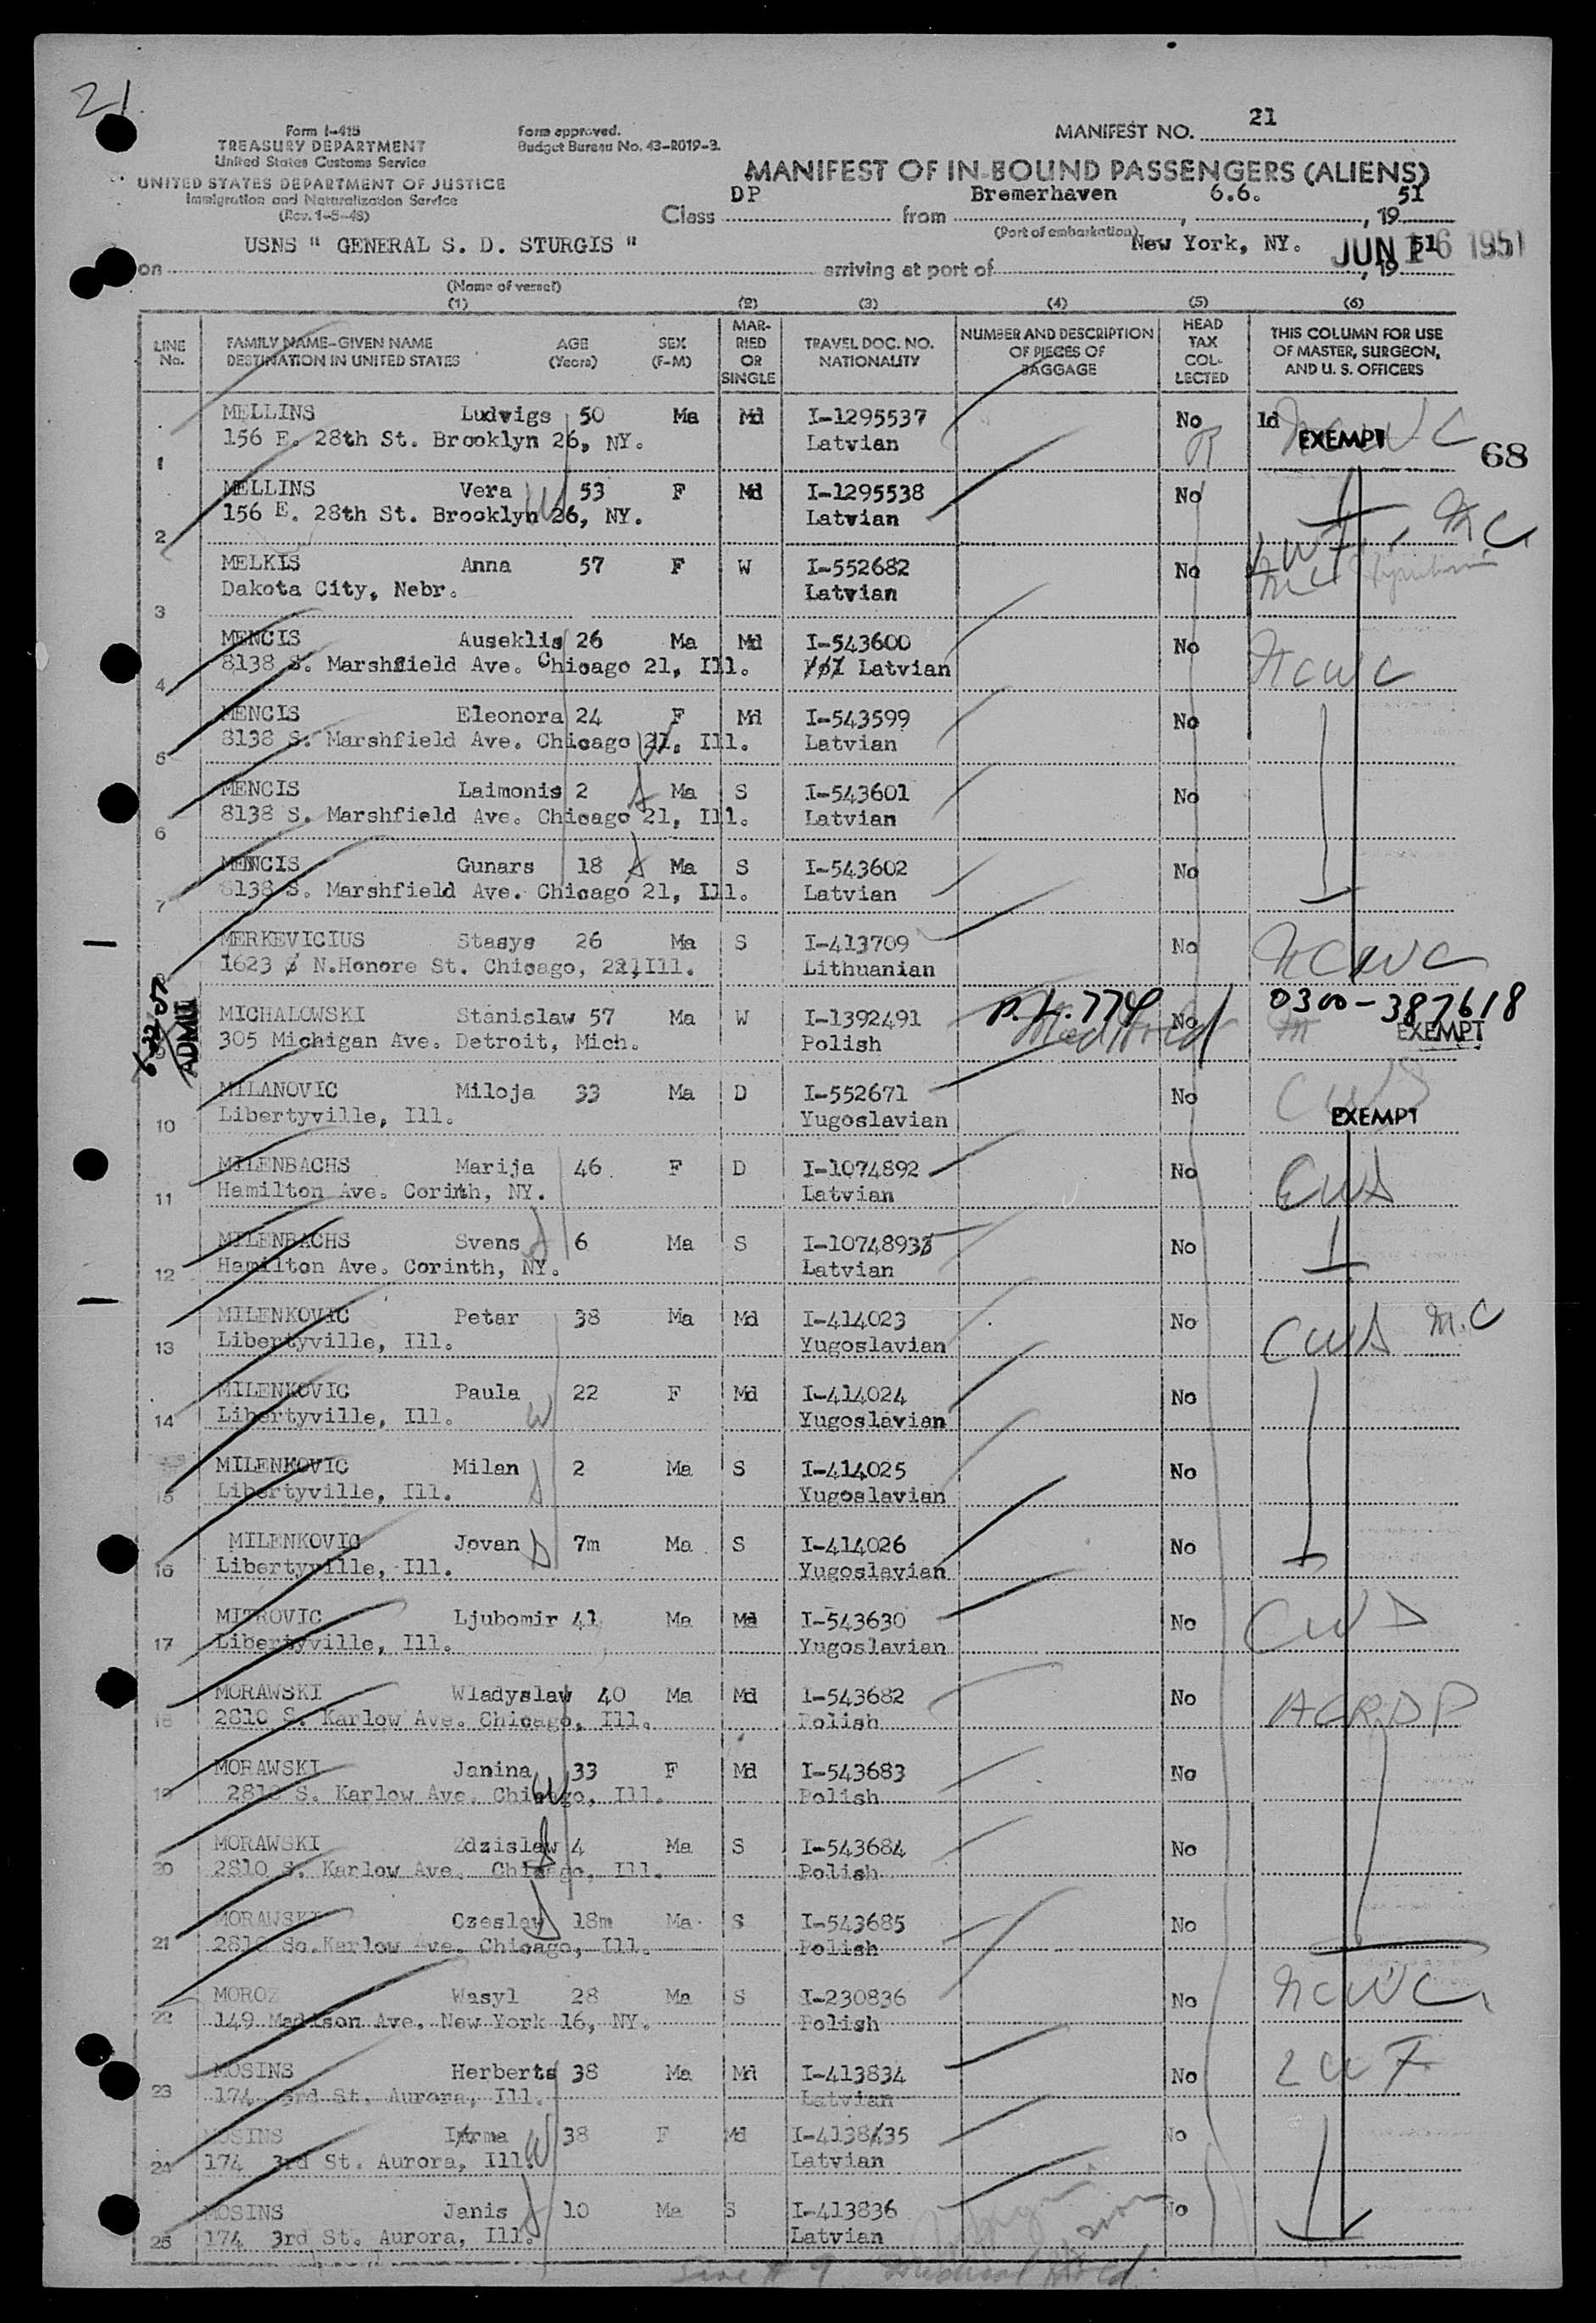 21
Form I-415
TREASURY DEPARTMENT
United States Customs Service
UNITED STATES DEPARTMENT OF JUSTICE
Immigration and Naturalization Service
(Rev. 1-5-48)
Form approved.
Budget Bureau No. 43-R019-3.
MANIFEST NO. 21
MANIFEST OF IN-BOUND PASSENGERS (ALIENS)
Class DP from Bremerhaven, 6.6., 1951
(Port of embarkation)
on USNS " GENERAL S. D. STURGIS " arriving at port of New York, NY. JUN 16 1951, 1951
(Name of vessel)
(1) (2) (3) (4) (5) (6)
LINE No. FAMILY NAME-GIVEN NAME DESTINATION IN UNITED STATES AGE (Years) SEX (F-M) MARRIED OR SINGLE TRAVEL DOC. NO. NATIONALITY NUMBER AND DESCRIPTION OF PIECES OF BAGGAGE HEAD TAX COLLECTED THIS COLUMN FOR USE OF MASTER, SURGEON, AND U. S. OFFICERS
MELLINS Ludvigs 50 Ma Md I-1295537 No ld NCWC EXEMPT
1 156 E. 28th St. Brooklyn 26, NY. Latvian 68
MELLINS Vera W 53 F Md I-1295538 No
2 156 E. 28th St. Brooklyn 26, NY. Latvian
MELKIS Anna 57 F W I-552682 No LWF
3 Dakota City, Nebr. Latvian
MENCIS Auseklis 26 Ma Md I-543600 No NCWC
4 8138 S. Marshfield Ave. Chicago 21, Ill. Latvian
MENCIS Eleonora 24 F Md I-543599 No
5 8138 S. Marshfield Ave. Chicago 21, Ill. Latvian
MENCIS Laimonis 2 Ma S I-543601 No
6 8138 S. Marshfield Ave. Chicago 21, Ill. Latvian
MENCIS Gunars 18 Ma S I-543602 No
7 8138 S. Marshfield Ave. Chicago 21, Ill. Latvian
MERKEVICIUS Stasys 26 Ma S I-413709 No NCWC
8 1623 N.Honore St. Chicago, 22, Ill. Lithuanian
MICHALOWSKI Stanislaw 57 Ma W I-1392491 P.L. 774 No 0300-387618
ADMIT
9 305 Michigan Ave. Detroit, Mich. Polish Med Hold EXEMPT
MILANOVIC Miloja 33 Ma D I-552671 No CWS
10 Libertyville, Ill. Yugoslavian EXEMPT
MILENBACHS Marija 46 F D I-1074892 No CWS
11 Hamilton Ave. Corinth, NY. Latvian
MILENBACHS Svens 6 Ma S I-1074893 No
12 Hamilton Ave. Corinth, NY. Latvian
MILENKOVIC Petar 38 Ma Md I-414023 No CWS M.C
13 Libertyville, Ill. Yugoslavian
MILENKOVIC Paula 22 F Md I-414024 No
14 Libertyville, Ill. W Yugoslavian
MILENKOVIC Milan 2 Ma S I-414025 No
15 Libertyville, Ill. Yugoslavian
MILENKOVIC Jovan 7m Ma S I-414026 No
16 Libertyville, Ill. Yugoslavian
MITROVIC Ljubomir 41 Ma Md I-543630 No CWS
17 Libertyville, Ill. Yugoslavian
MORAWSKI Wladyslaw 40 Ma Md I-543682 No ACRDP
18 2810 S. Karlow Ave. Chicago, Ill. Polish
MORAWSKI Janina 33 F Md I-543683 No
19 2810 S. Karlow Ave. Chicago, Ill. W Polish
MORAWSKI Zdzislaw 4 Ma S I-543684 No
20 2810 S. Karlow Ave. Chicago, Ill. Polish
MORAWSKI Czeslaw 18m Ma S I-543685 No
21 2810 So.Karlow Ave. Chicago, Ill. Polish
MOROZ Wasyl 28 Ma S I-230836 No NCWC
22 149 Madison Ave. New York 16, NY. Polish
MOSINS Herberts 38 Ma Md I-413834 No LWF
23 174 3rd St. Aurora, Ill. Latvian
MOSINS Irma 38 F Md I-413835 No
24 174 3rd St. Aurora, Ill. W Latvian
MOSINS Janis 10 Ma S I-413836 No
25 174 3rd St. Aurora, Ill. Latvian
Line # 9 Medical Hold.